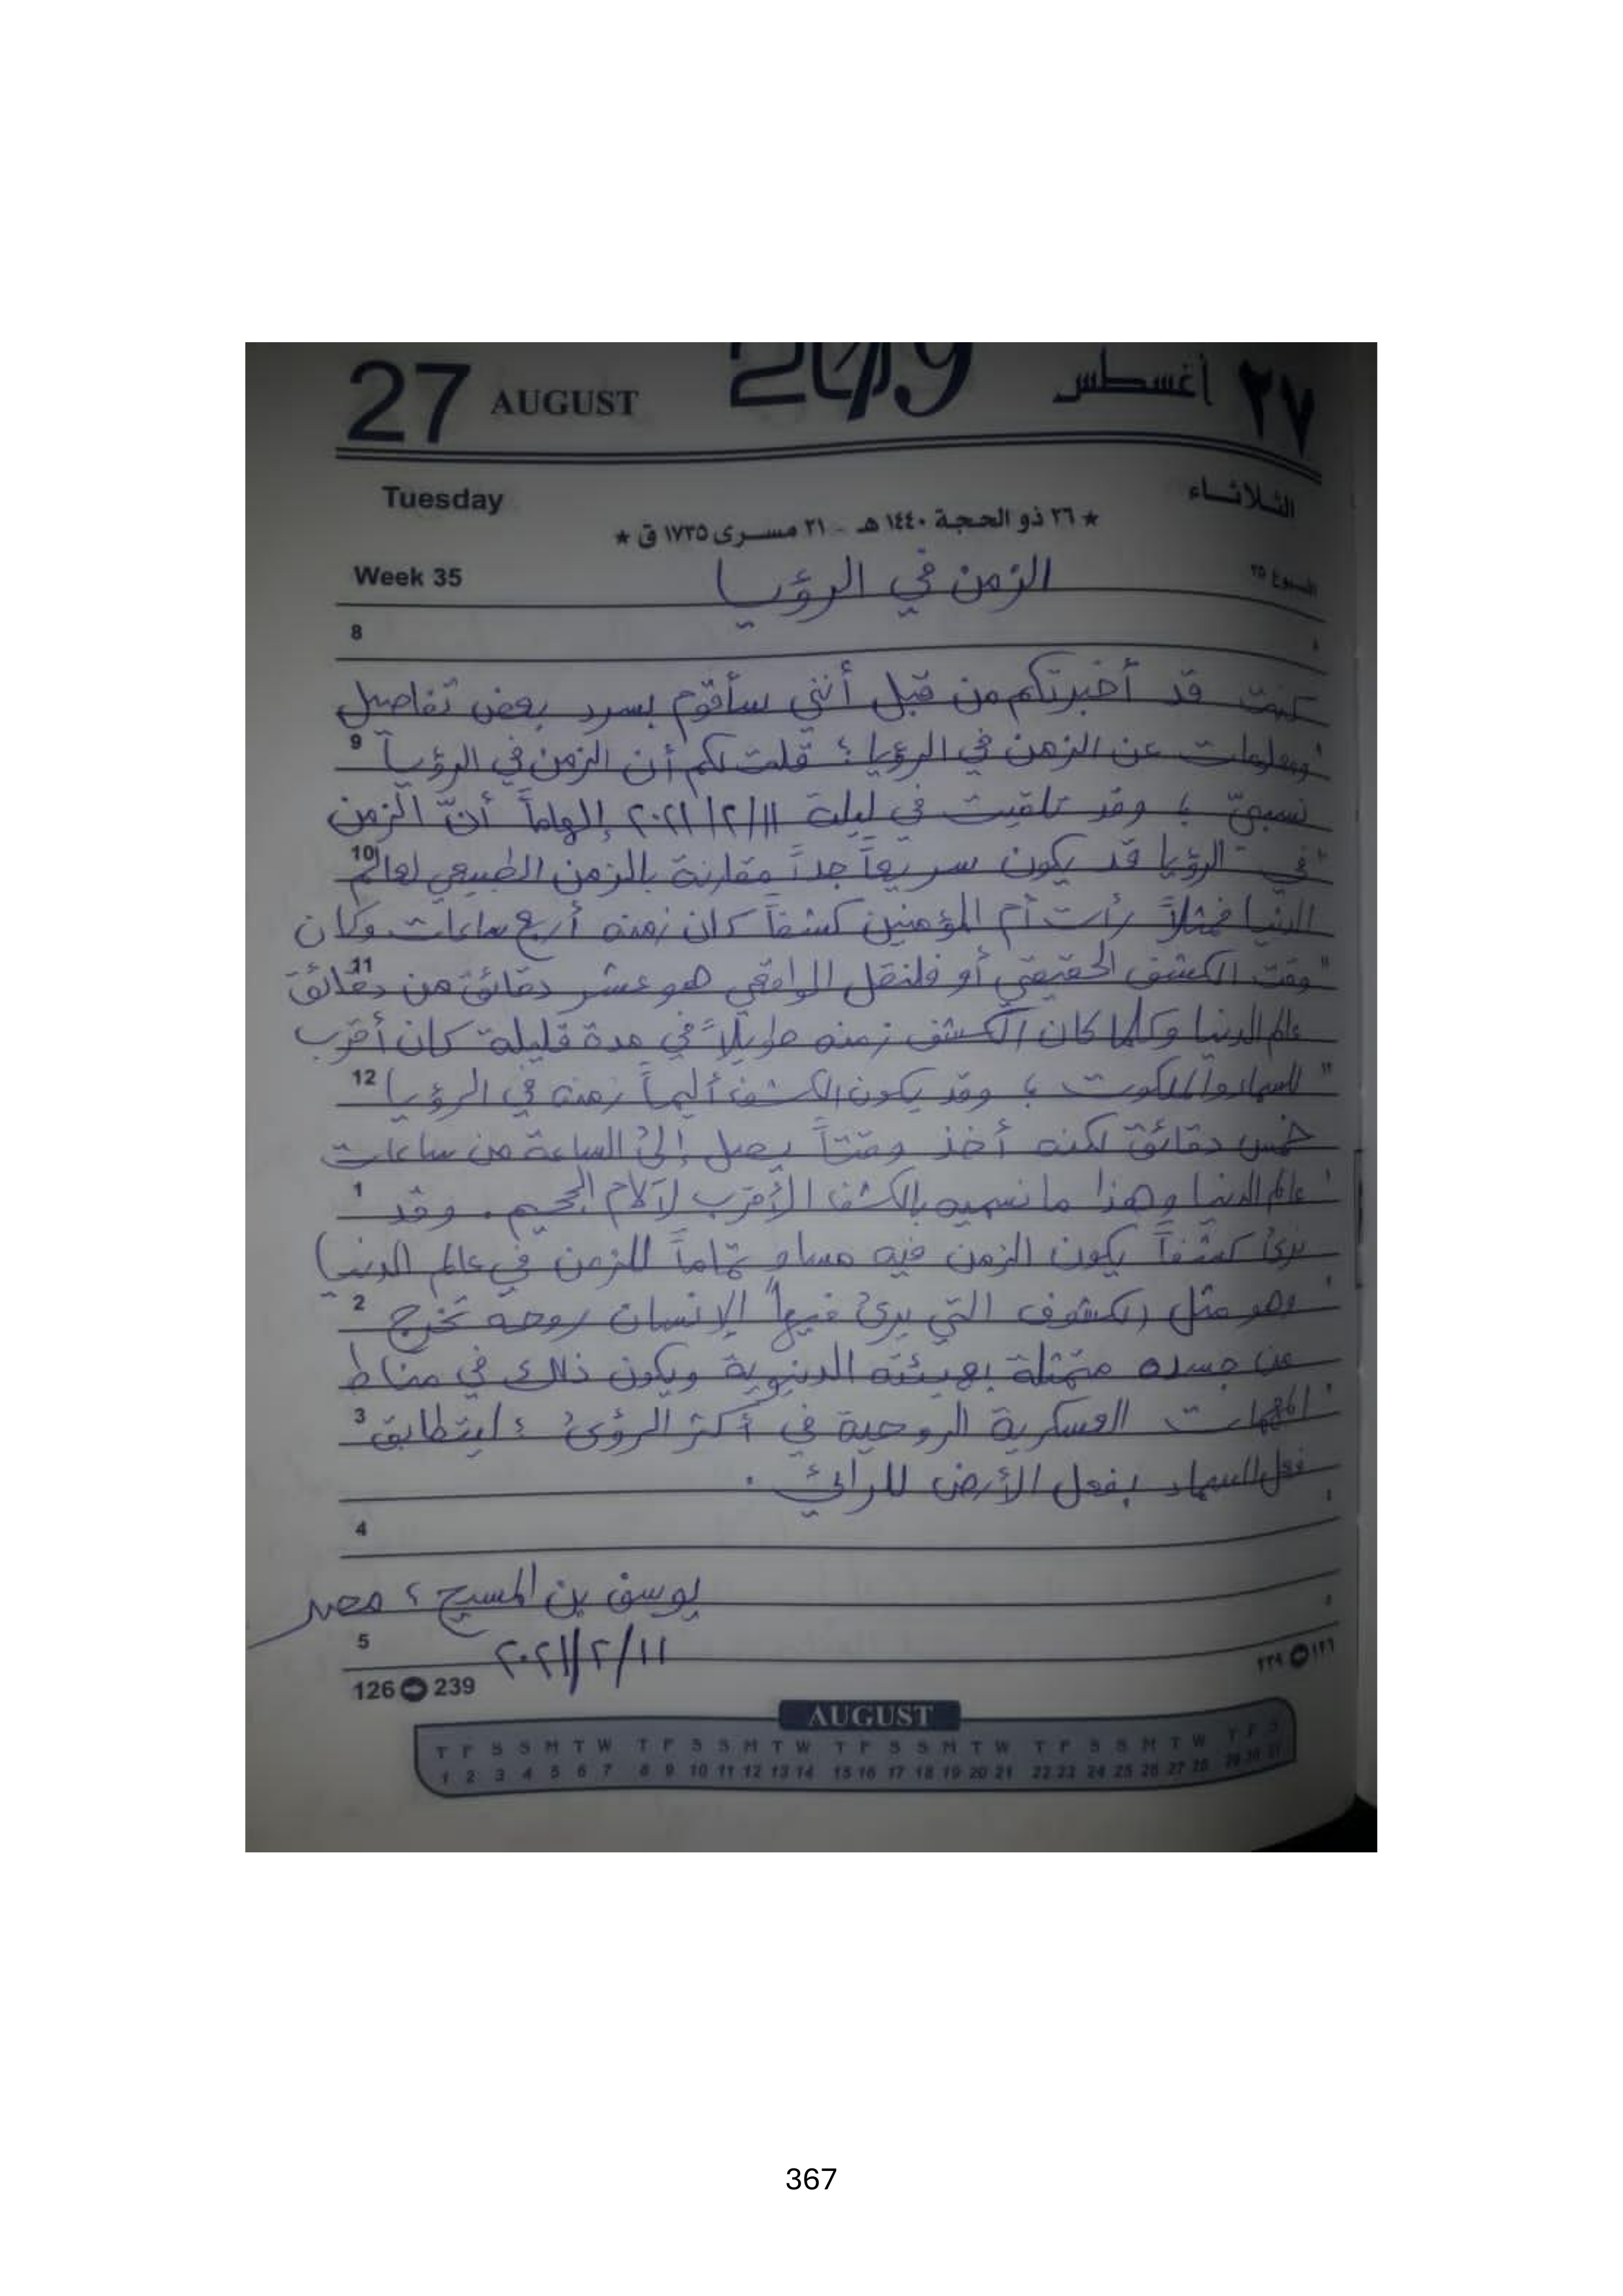 27 AUGUST 2019 ٢٧ أغسطس
Tuesday الثلاثاء
★ ٢٦ ذو الحجة ١٤٤٠ هـ - ٢١ مسرى ١٧٣٥ ق ★
Week 35 الزمن في الرؤيا ٣٥
8
كنت قد أخبرتكم من قبل أنني سأقوم بسرد بعض تفاصيل
9 ومعلومات عن الزمن في الرؤيا ؛ قلت لكم أن الزمن في الرؤيا
نسبيّ ؛ وقد تلقيت في ليلة ٢٠٢١/٢/١١ إلهاماً أنّ الزمن
10 في الرؤيا قد يكون سريعاً جداً مقارنة بالزمن الطبيعي لعالم
الدنيا فمثلاً رأت أم المؤمنين كشفاً كان زمنه أربع ساعات وكان
11 وقت الكشف الحقيقي أو فلنقل الواقعي هو عشر دقائق من دقائق
عالم الدنيا وكلما كان الكشف زمنه طويلاً في مدة قليلة كان أقرب
12 للسماء والملكوت ؛ وقد يكون الكشف أليماً زمنه في الرؤيا
خمس دقائق لكنه أخذ وقتاً يصل إلى الساعة من ساعات
1 عالم الدنيا وهذا ما نسميه بالكشف الأقرب لآلام الجحيم . وقد
نرى كشفاً يكون الزمن فيه مساوٍ تماماً للزمن في عالم الدنيا
2 وهو مثل الكشوف التي يرى فيها الإنسان روحه تخرج
من جسده متمثلة بهيئته الدنيوية ويكون ذلك في مناط
3 المهمات العسكرية الروحية في أكثر الرؤى ؛ ليتطابق
فعل السماء بفعل الأرض للرائي .
4
يوسف بن المسيح ؛ مصر
5 ٢٠٢١/٢/١١
126 239 ٢٣٩ ١٢٦
AUGUST
T F S S M T W T F S S M T W T F S S M T W T F S S M T W T F S
1 2 3 4 5 6 7 8 9 10 11 12 13 14 15 16 17 18 19 20 21 22 23 24 25 26 27 28 29 30 31
367